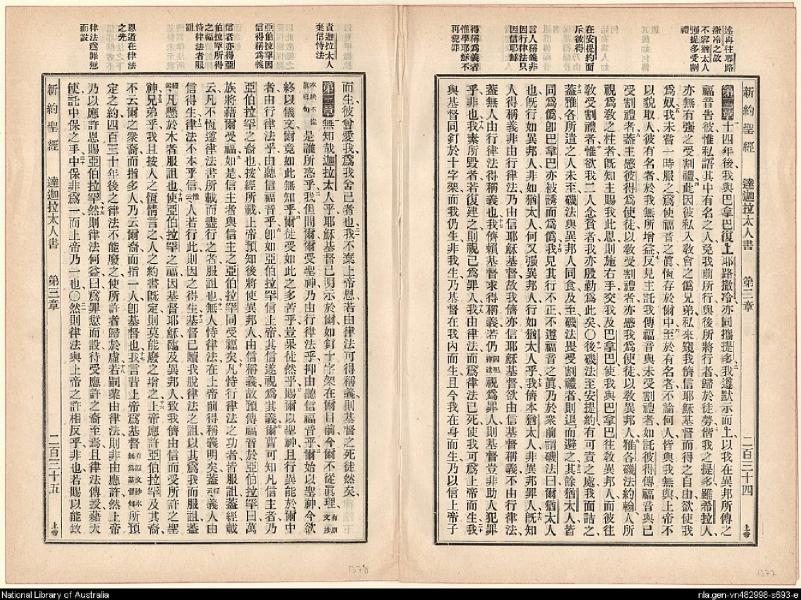 新約聖經 達迦拉太人書 第二章 二百三十四 上帝
達再往耶路
撒冷之故
不容猶太人
強提多受割
在安提約面
斥彼得
言人稱義非
因行律法只
因信耶穌
得稱為義者
惟學耶穌不
再犯罪
第二章 十四年後我與巴拿巴復上耶路撒冷亦同攜提多我遵默示而上以我在異邦所傳之
福音告彼惟私語其中有名之人免我前所行與後所將行者歸於徒勞偕我之提多雖希拉人
亦無有強之受割禮此因彼私入教會之偽兄弟私來窺我儕信耶穌基督而得之自由欲使我
為奴我未嘗一時服之為使福音之真恆存於爾中至於有名者不論何人皆與我無與上帝不
以貌取人彼有名者於我無所增益反見主託我傳福音與未受割禮者如託彼得傳福音與已
受割禮者蓋主感彼得為使徒以教受割禮者亦感我為使徒以教異邦人雅各磯法約翰人所
視為教之柱者既知主賜我此恩則施右手交我及巴拿巴使我與巴拿巴往教異邦人而彼往
教受割禮者惟欲我二人念貧者我亦殷勤為此矣○後磯法至安提約有可責之處我面詰之
蓋雅各所遣之人未至磯法與異邦人同食及至磯法畏受割禮者則退而避之其餘猶太人皆
同為偽即巴拿巴亦被誘而為偽我見其行不正不遵福音之真乃於眾前謂磯法曰爾猶太人
也既行如異邦人非如猶太人何又強異邦人行如猶太人乎我儕本猶太人非異邦罪人既知
人得稱義非由行律法乃由信耶穌基督故我儕亦信耶穌基督欲由信基督稱義不由行律法
蓋無人由行律法得稱義也我儕賴基督求得稱義若仍視為罪人則基督豈非助人犯罪
乎非也我素所毀者若復建之則視己為罪人我由律法而為律法已死使我可為上帝而生我
與基督同釘於十字架而我仍生非我生乃基督在我內而生且今我在身而生乃以信上帝子
責迦拉太人
棄信恃法
亞伯拉罕因
信得稱為義
信者亦得亞
伯拉罕所得
之福
恃律法者服
詛
恩道在律法
之先
律法為罪愆
而設
而生彼曾愛我為我舍己者也我不棄上帝恩若由律法可得稱義則基督之死徒然矣
第三章 無知哉迦拉太人乎耶穌基督已明示於爾如釘十字架在爾目前今爾不從真理
是誰所惑乎我但問爾爾受聖神乃由行律法乎抑由聽信福音乎爾始以聖神今欲
終以儀文爾竟如此無知乎爾徒受如此之多苦乎豈果徒然乎賜爾以聖神且行異能於爾中
者由行律法乎由聽信福音乎即如亞伯拉罕信上帝其信遂視為其義爾當可知凡信主者乃
亞伯拉罕之裔也按經所載上帝預知後將使異邦人由信稱義故預傳福音於亞伯拉罕曰萬
族將藉爾受福如是信主者與信主之亞伯拉罕同受福矣凡恃行律法之功者皆服詛蓋經載
云凡不恆遵律法書所載而盡行之者服詛也無人恃律法在上帝前得稱義明矣蓋義人由
信得生律法不本乎信人若行此則因之得生基督已贖我脫律法之詛以其為我而服詛蓋
凡懸於木者服詛也使亞伯拉罕之福因基督耶穌臨及異邦人致我儕由信而受所許之聖
神兄弟乎我且按人之恆情言之人之約書既定則莫能廢之增之上帝應許亞伯拉罕及其裔
不云爾之眾裔而指多人乃云爾裔而指一人即基督也我言昔上帝為基督所預
定之約四百三十年後之律法不能廢之使所許者歸於虛若嗣業由律法則非由應許然上帝
乃以應許恩賜亞伯拉罕然則律法何益曰為罪愆而設待受應許之裔至焉且律法傳授藉天
使託中保之手中保非為一而上帝乃一也○然則律法與上帝之許相反乎非也若賜以能致
新約聖經 達迦拉太人書 第三章 二百三十五 上帝
1378
1377
National Library of Australia
nla.gen-vn482998-s693-e